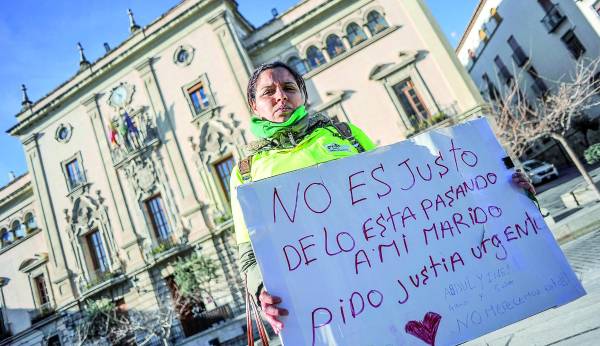 NO ES JUSTO
DE LO ESTA PASANDO
A MI MARIDO
PIDO JUSTIA URGENTE
NO MERECEMOS